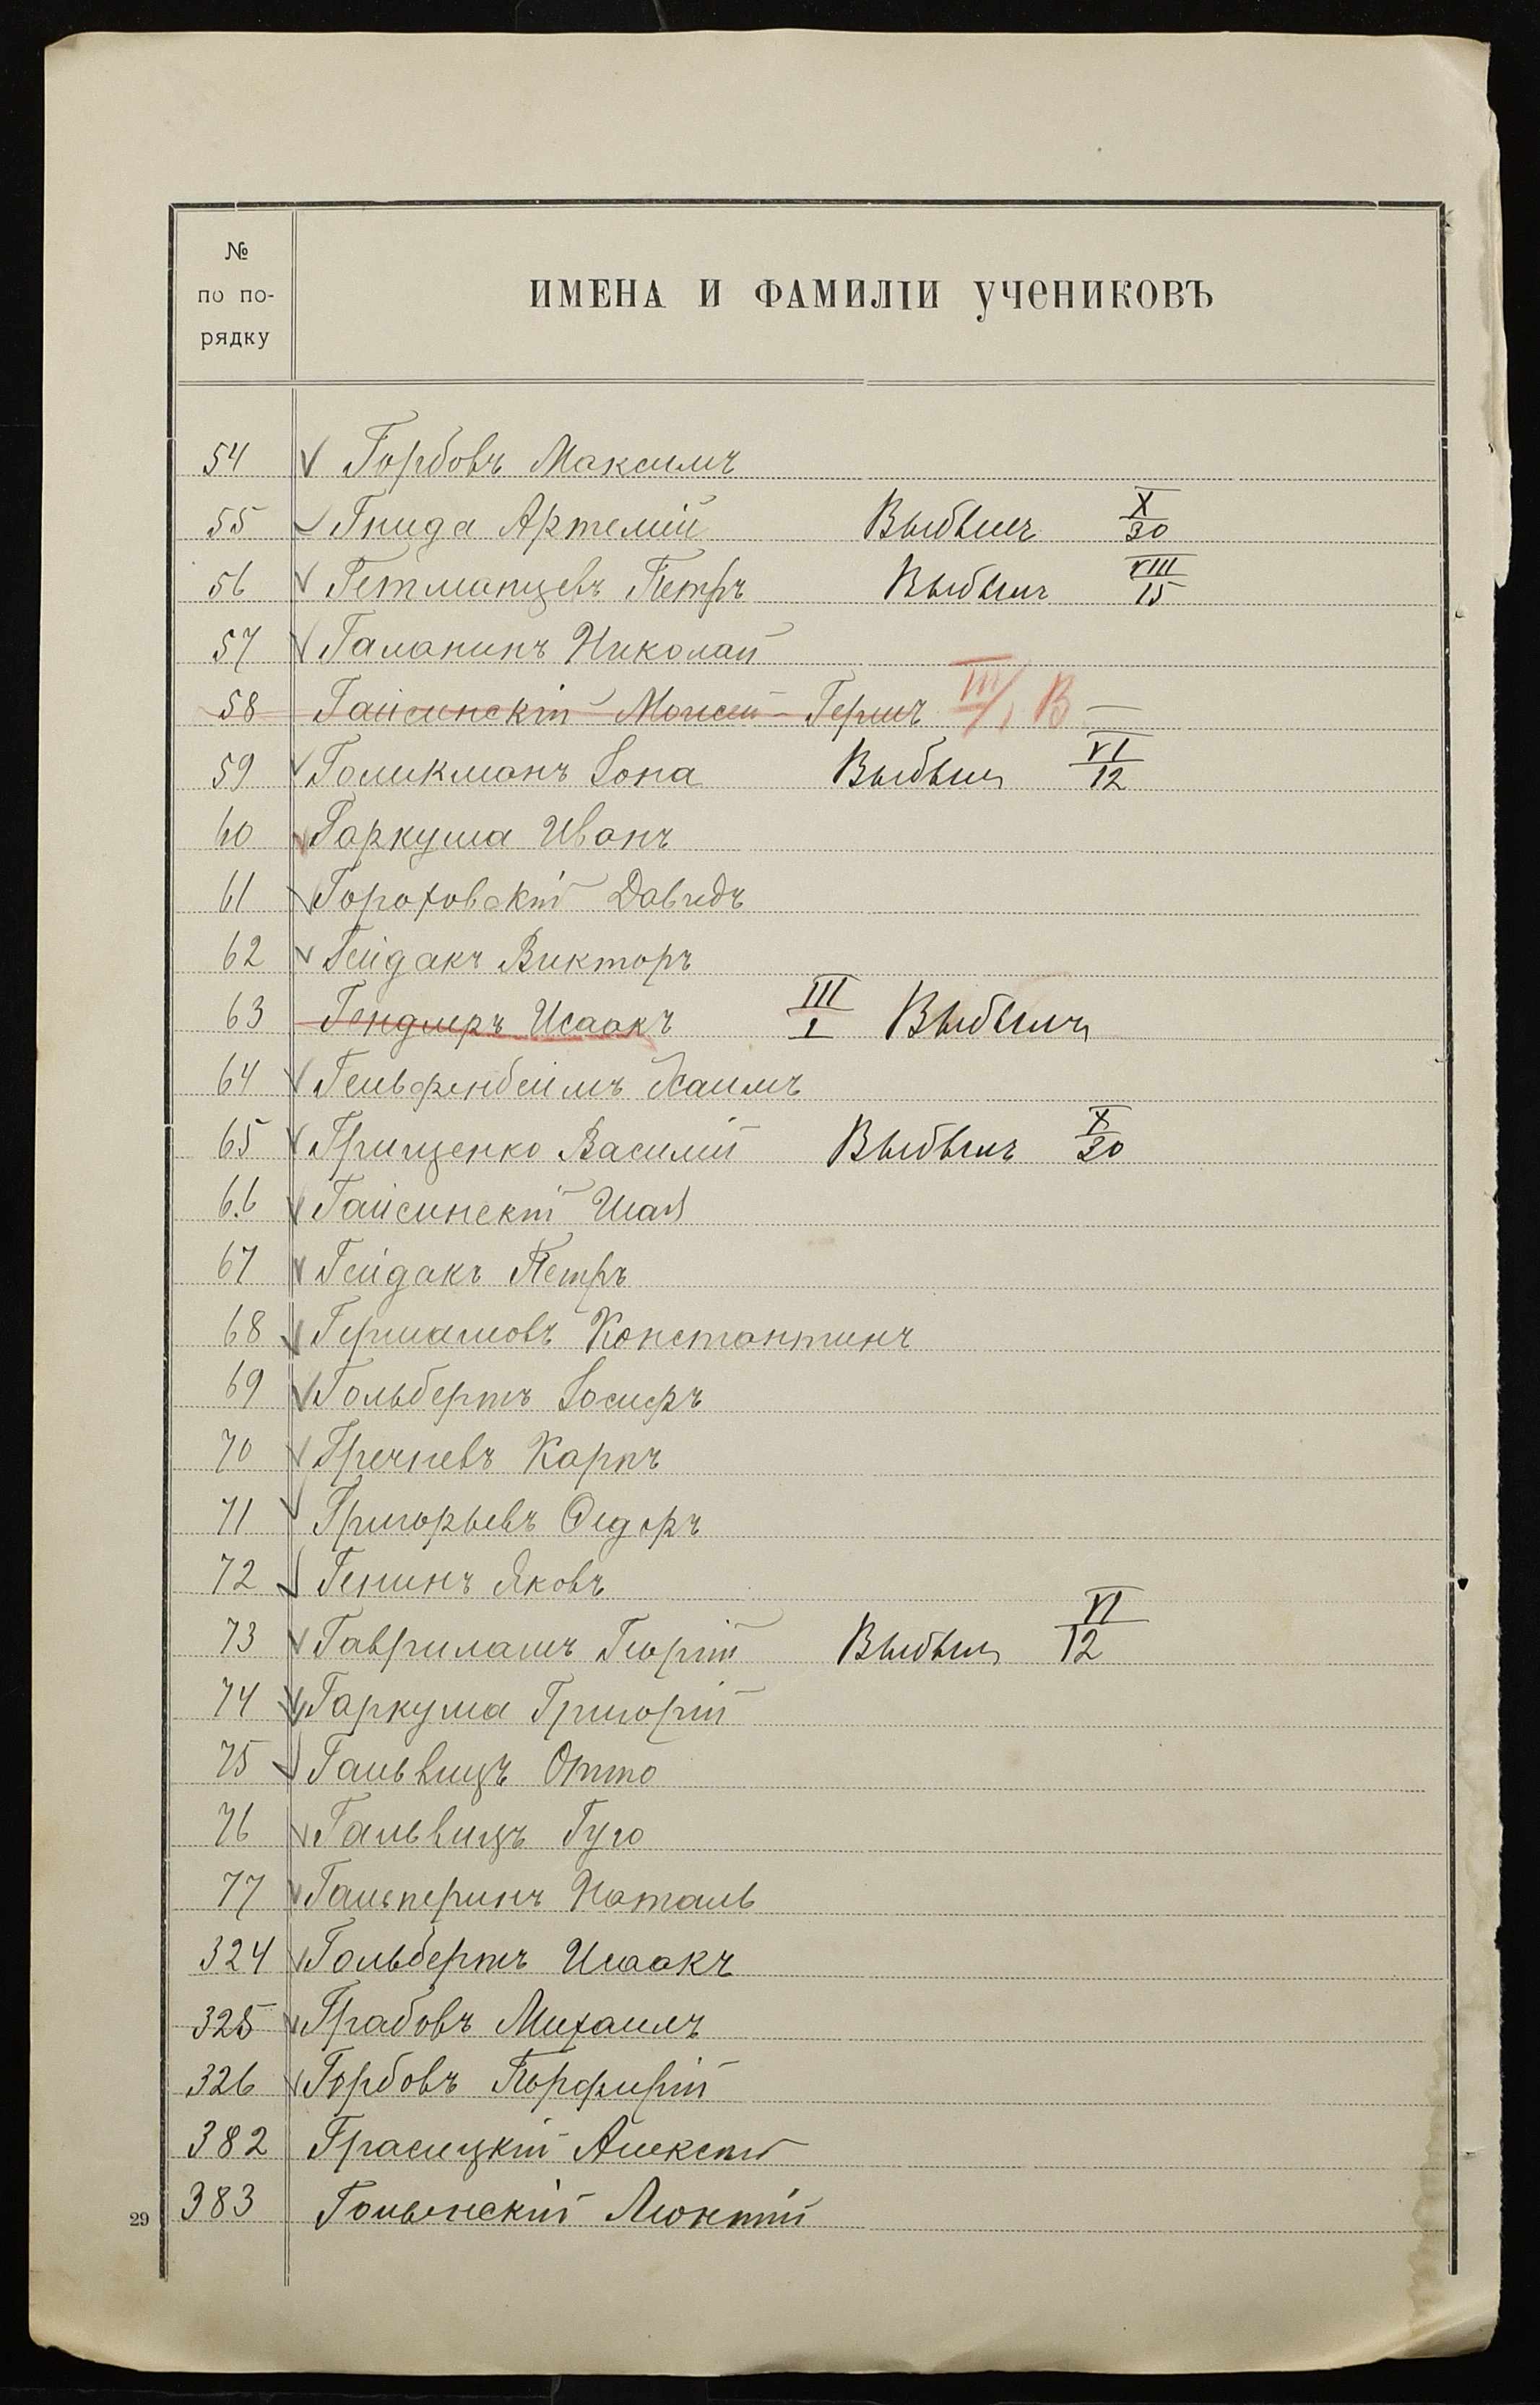 №
по по-
рядку
ИМЕНА И ФАМИЛІИ учениковъ
54 Горбовъ Максимъ
55 Гнида Артемій Выбылъ X/30
56 Гетманцевъ Петръ Выбылъ VIII/15
57 Галанинъ Николай
58 Гайсинскій Моисей-Гершъ III/1 В —
59 Голикманъ Іона Выбылъ VI/12
60 Гаркуша Иванъ
61 Гороховскій Давидъ
62 Гейдакъ Викторъ
63 Гендлеръ Исаакъ III/1 Выбылъ
64 Гельфенбеймъ Хаимъ
65 Грищенко Василій Выбылъ X/30
66 Гайсинскій Шая
67 Гейдакъ Петръ
68 Константинъ
69 Гольбертъ Іосифъ
70 Гречневъ Карпъ
71 Григорьевъ Ѳедоръ
72 Генинъ Яковъ
73 Гаврилашъ Георгій Выбылъ VI/12
74 Гаркуша Григорій
75 Гальвицъ Отто
76 Гальвицъ Гуго
77 Гальперинъ Наталь
324 Гольбертъ Исаакъ
325 Грабовъ Михаилъ
326 Горбовъ Порфирій
382 Грасицкій Алексѣй
383 Леонтій
29